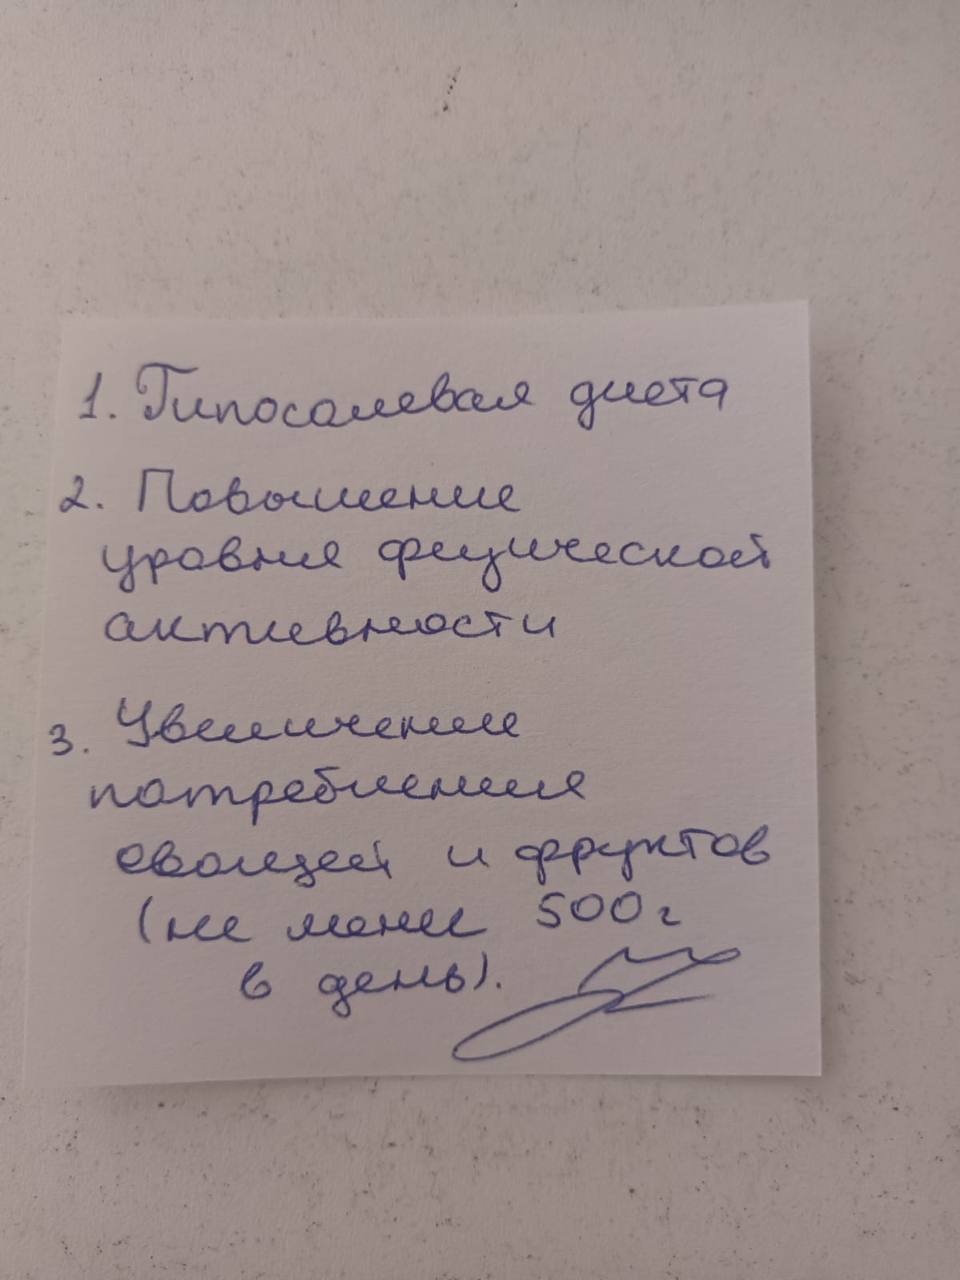 1. Гипосолевая диета
2. Повышение
уровня физической
активности
3. Увеличение
потребления
овощей и фруктов
(не менее 500г
в день).